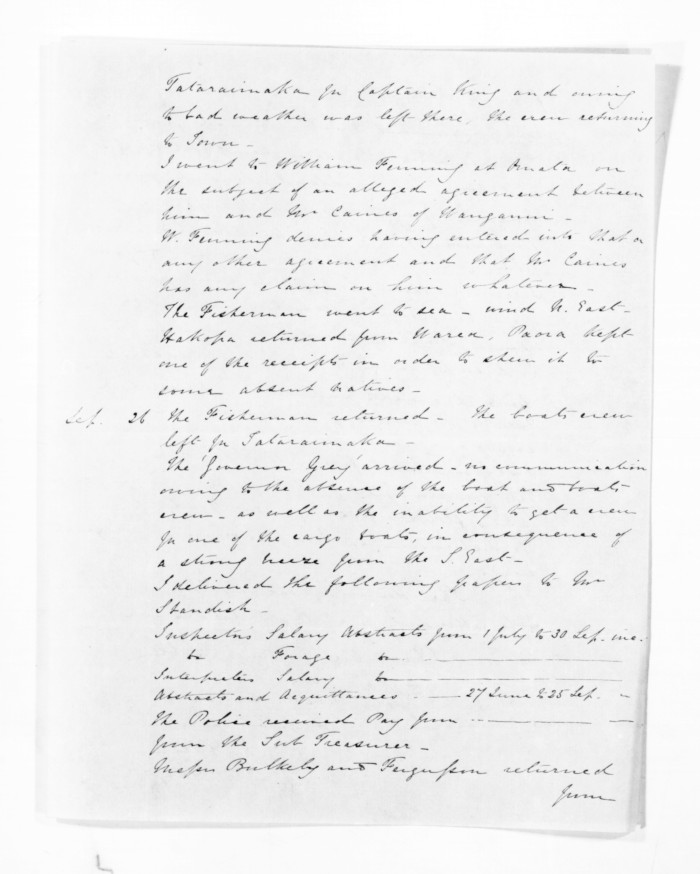 Tataraimaka for Captain King and owing
to bad weather was left there, the crew returning
to Town -
I went to William Fenning at Omata on
the subject of an alleged agreement between
him and Mr Caines of Wanganui -
W. Fenning denies having entered into that or
any other agreement and that Mr Caines
has any claim on him whatever -
The Fisherman went to sea - wind N. East -
Hakopa returned from Warea, Paora kept
one of the receipts in order to shew it to
some absent natives -
Sep. 26 The Fisherman returned - The boats crew
left for Tataraimaka -
The 'Governor Grey' arrived - no communication
owing to the absence of the boat and boats
crew - as well as the inability to get a crew
for one of the cargo boats, in consequence of
a strong breeze from the S. East -
I delivered the following papers to Mr
Standish -
Inspector's Salary Abstracts from 1 July to 30 Sep. inc.
do Forage do
Interpreters Salary do
Abstracts and Acquittances - 27 June to 25 Sep. "
The Police received Pay from
from the Sub Treasurer -
Messrs Bulkely and Fergusson returned
from